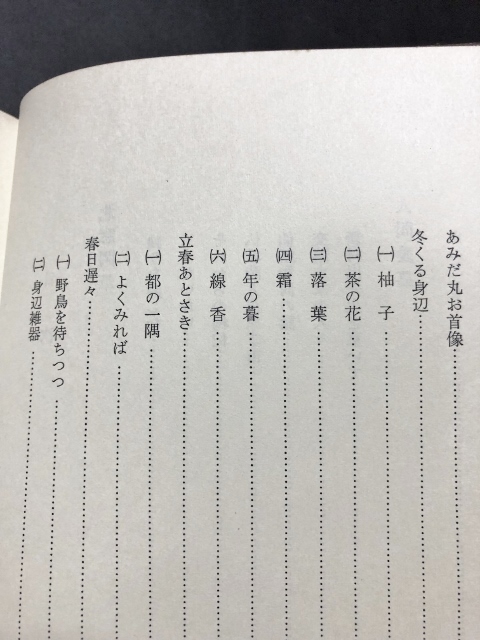 あみだ丸お首像…………
冬くる身辺…………
㈠ 柚子…………
㈡ 茶の花…………
㈢ 落葉…………
㈣ 霜…………
㈤ 年の暮…………
㈥ 線香…………
立春あとさき…………
㈠ 都の一隅…………
㈡ よくみれば…………
春日遅々…………
㈠ 野鳥を待ちつつ…………
㈡ 身辺雑器…………